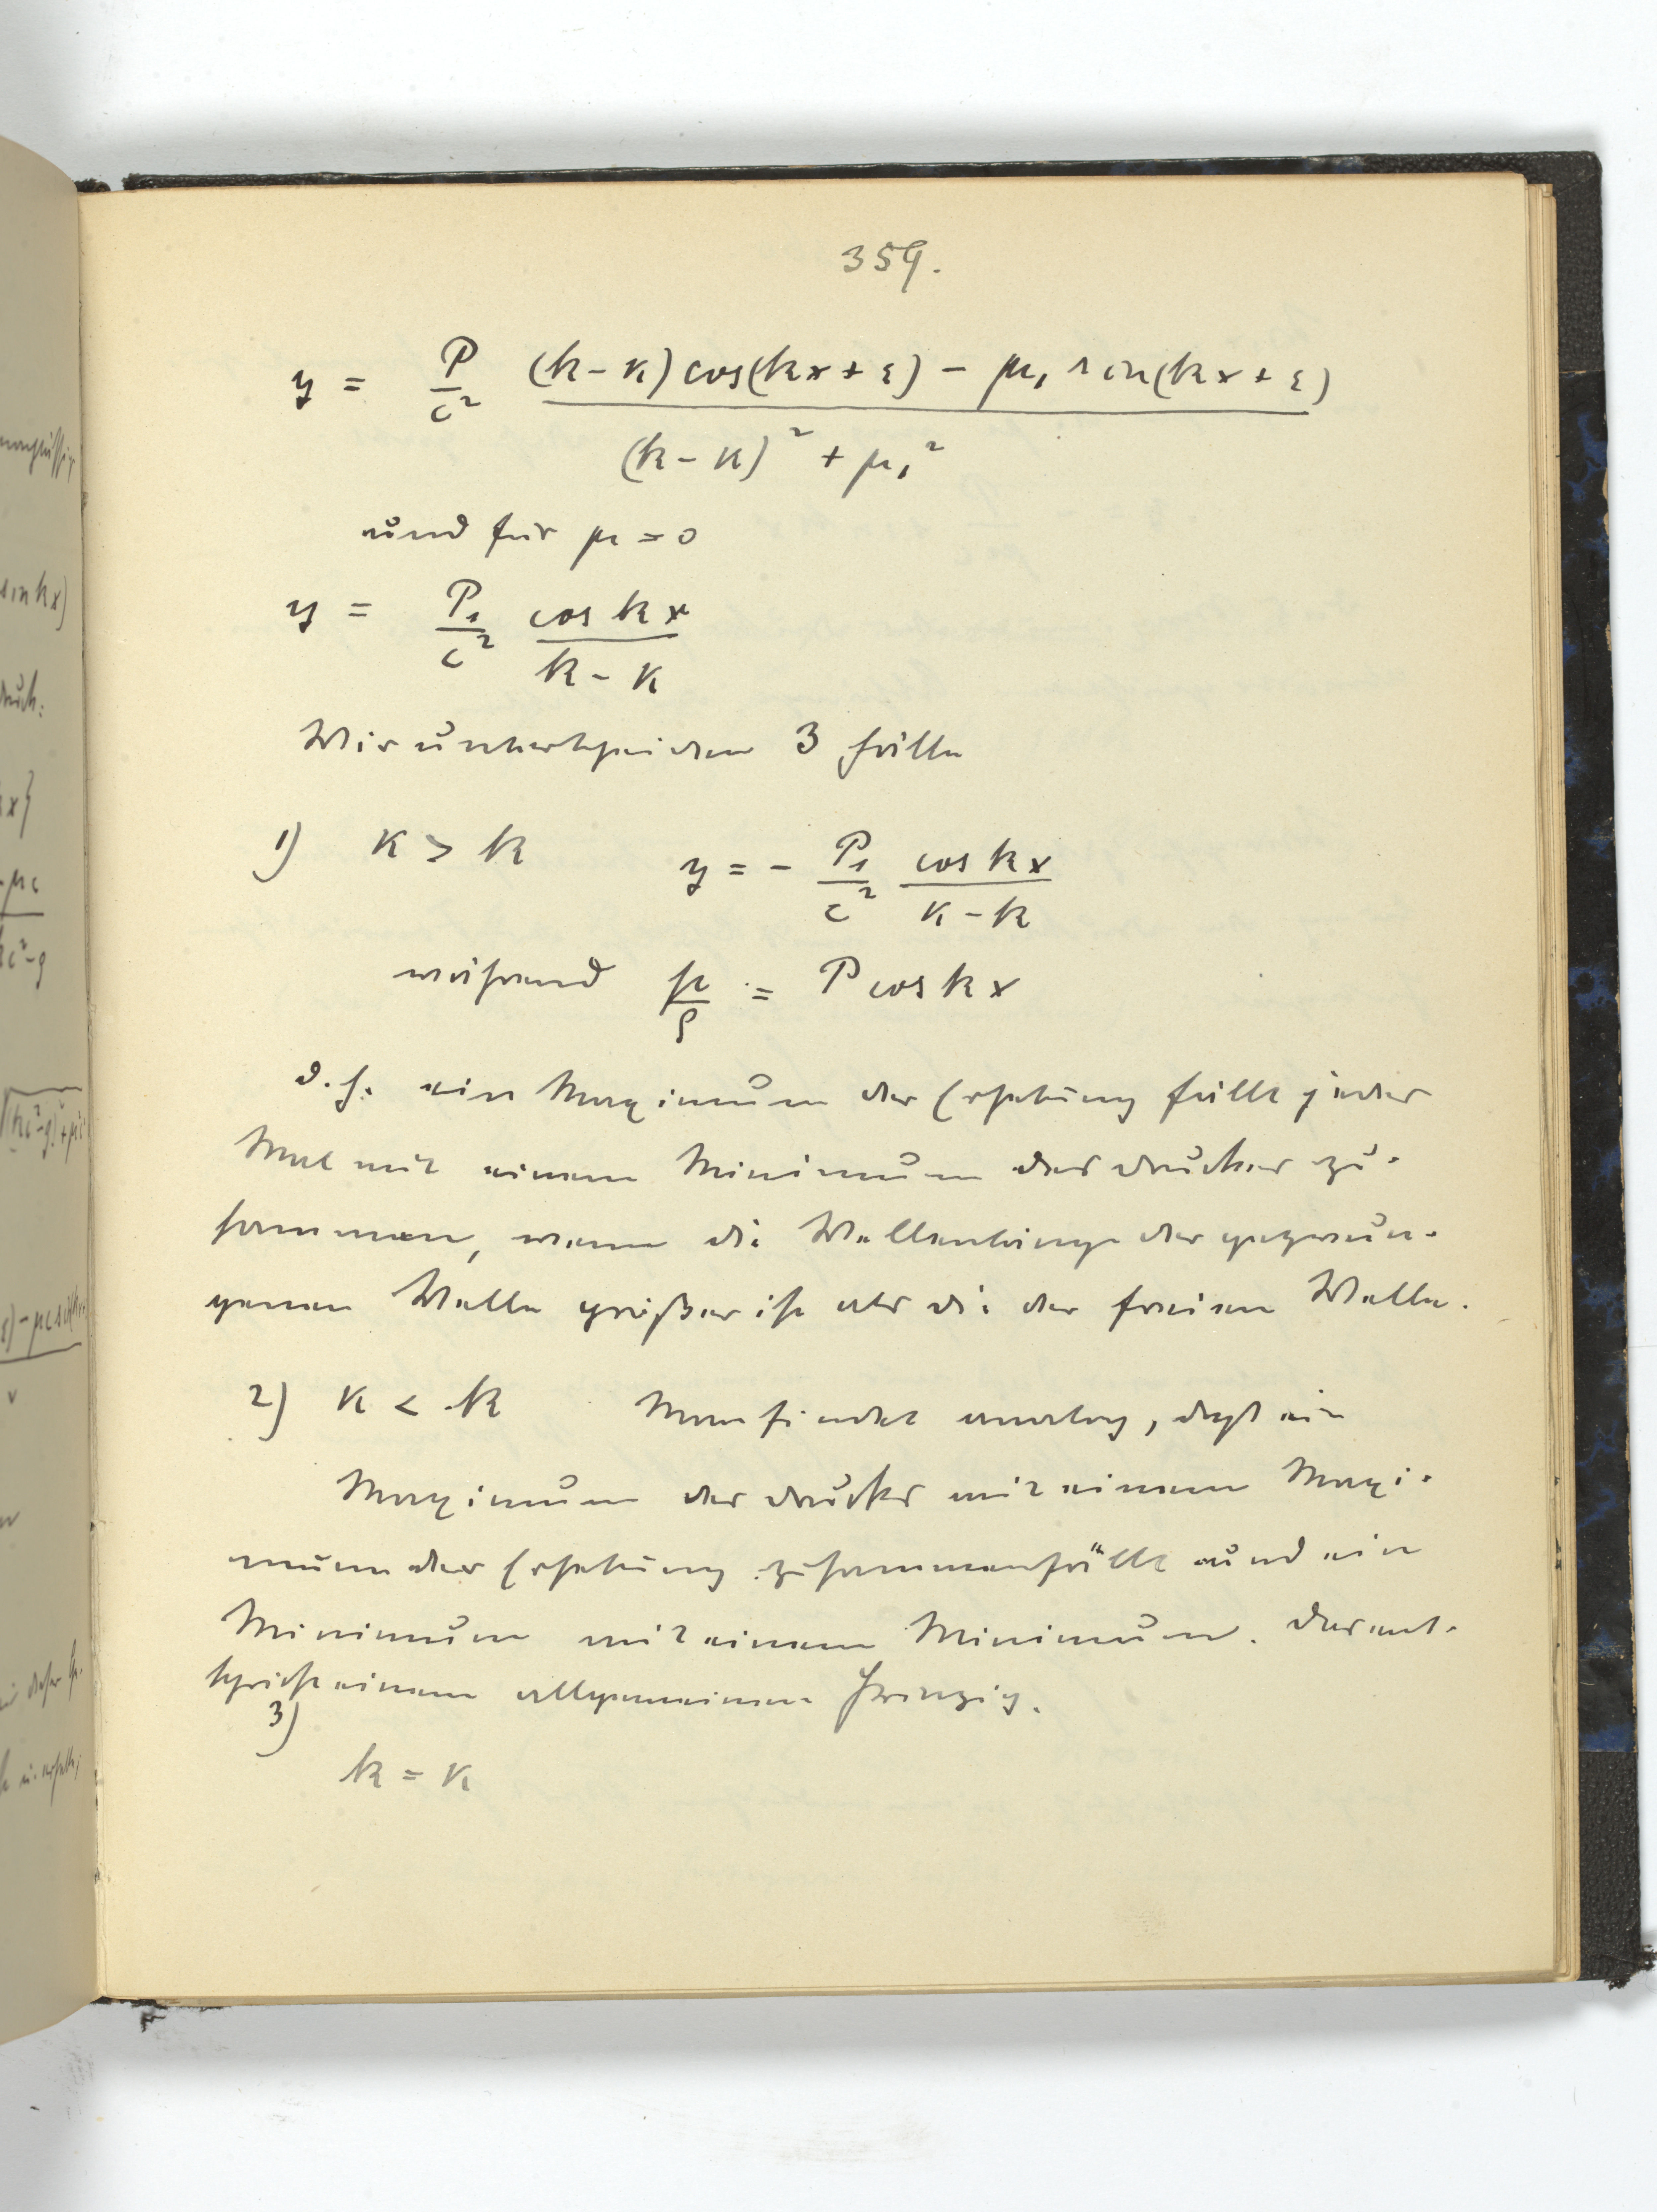 359.
y = P/c² ((k-κ) cos(kx+ε) - μ₁ sin(kx+ε)) / ((k-κ)² + μ₁²)
und für μ = 0
y = P₁/c² cos kx / (k-κ)
Wir unterscheiden 3 Fälle
1) κ > k y = - P₁/c² cos kx / (κ-k)
während p/ρ = P cos kx
d. h. ein Maximum der Erhebung fällt jedes
Mal mit einem Minimum des Druckes zu-
sammen, wenn die Wellenlänge der gezwun-
genen Welle größer ist als die der freien Welle.
2) κ < k Man findet analog, daß ein
Maximum des Druckes mit einem Maxi-
mum der Erhebung zusammenfällt und ein
Minimum mit einem Minimum. Das ent-
spricht einem allgemeinen Prinzip.
3)
k = κ